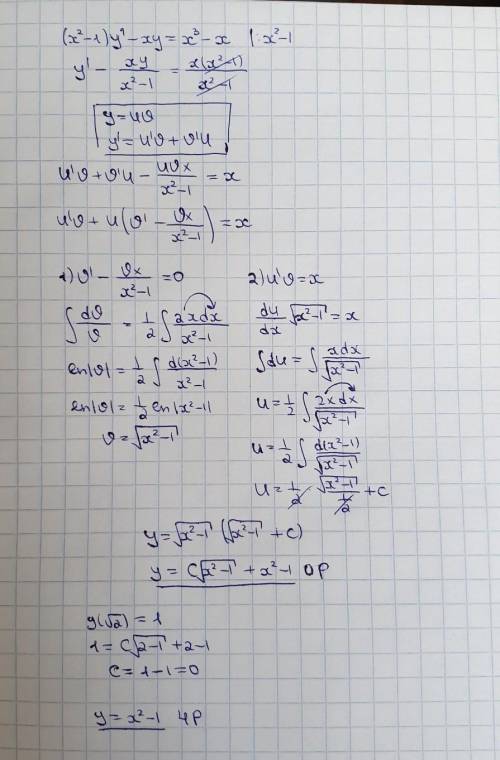 (x²-1)y' - xy = x³ - x |: x²-1
y' - xy/(x²-1) = x(x²-1)/(x²-1)
y = uϑ
y' = u'ϑ + ϑ'u
u'ϑ + ϑ'u - uϑx/(x²-1) = x
u'ϑ + u(ϑ' - ϑx/(x²-1)) = x
1) ϑ' - ϑx/(x²-1) = 0
∫ dϑ/ϑ = 1/2 ∫ 2xdx/(x²-1)
ln|ϑ| = 1/2 ∫ d(x²-1)/(x²-1)
ln|ϑ| = 1/2 ln|x²-1|
ϑ = √(x²-1)
2) u'ϑ = x
du/dx √(x²-1) = x
∫du = ∫ xdx/√(x²-1)
u = 1/2 ∫ 2xdx/√(x²-1)
u = 1/2 ∫ d(x²-1)/√(x²-1)
u = 1/2 · √(x²-1)/(1/2) + C
y = √(x²-1) (√(x²-1) + C)
y = C√(x²-1) + x² - 1 ОР
y(√2) = 1
1 = C√(2-1) + 2 - 1
C = 1 - 1 = 0
y = x² - 1 ЧР